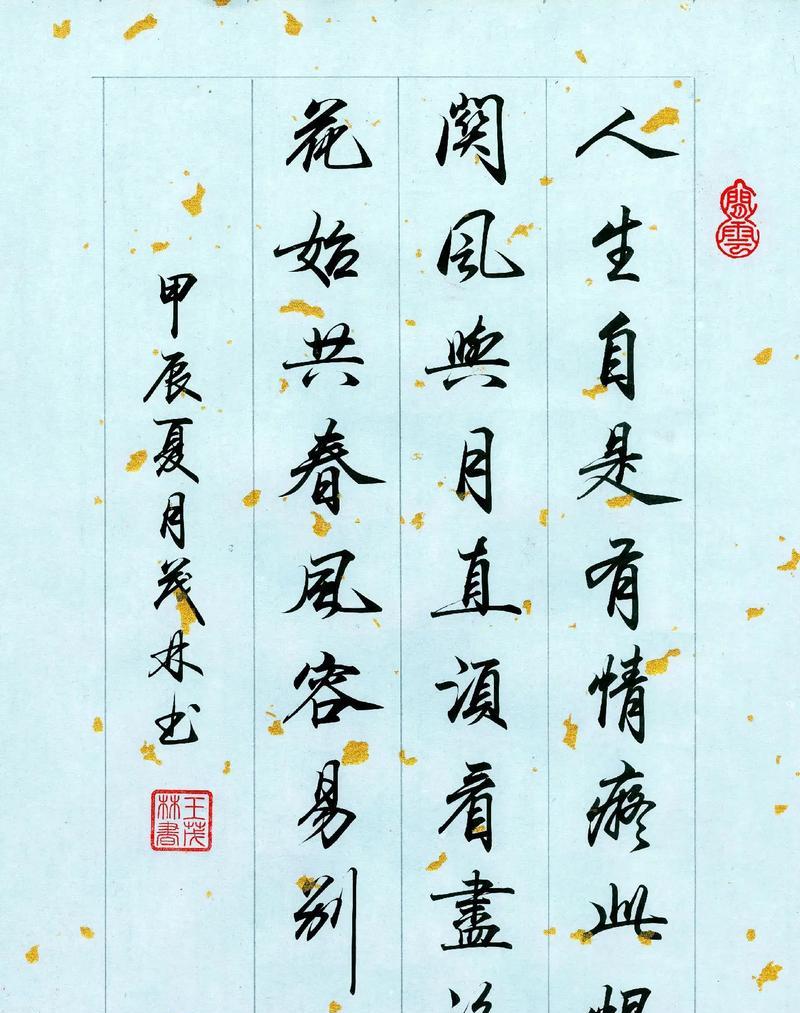 閒雲
人生自是有情癡此
關風與月直須看盡
花始共春風容易別
甲辰夏月茂林书
王茂林書